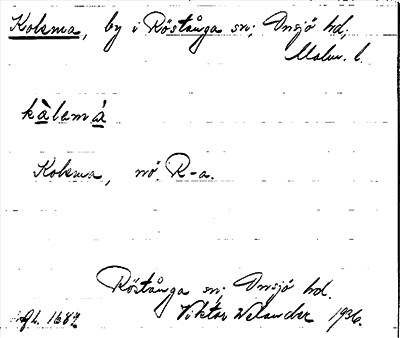 Kolema, by i Röstånga sn; Onsjö hd,
Malm. l.
kàlemá
Kolema, nö. R-a.
Röstånga sn; Onsjö hd.
Gh. 1687 Viktor Welander 1936.